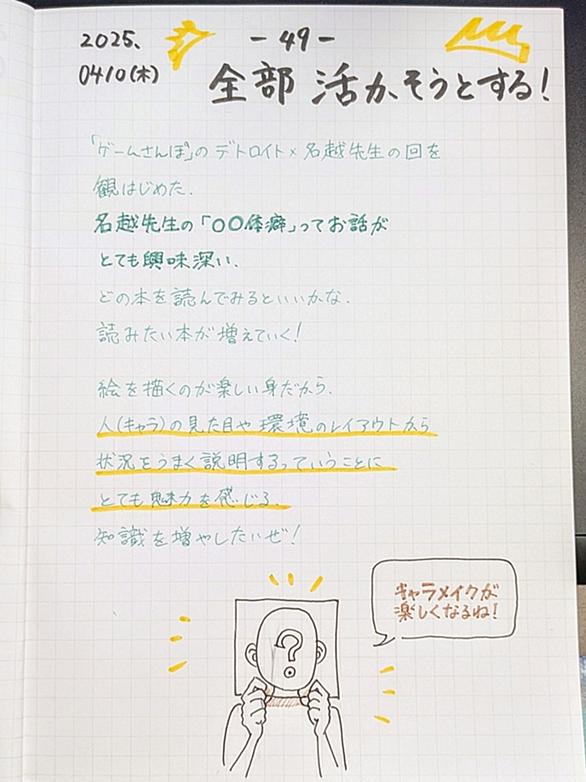 2025.
0410(木)
-49-
全部 活かそうとする!
「ゲームさんぽ」の デトロイト×名越先生の回を
観はじめた.
名越先生の「〇〇体癖」ってお話が
とても興味深い.
どの本を読んでみるといいかな.
読みたい本が増えていく!
絵を描くのが楽しい身だから.
人(キャラ)の見た目や環境のレイアウトから
状況をうまく説明するっていうことに
とても魅力を感じる.
知識を増やしたいぜ!
キャラメイクが
楽しくなるね!
?